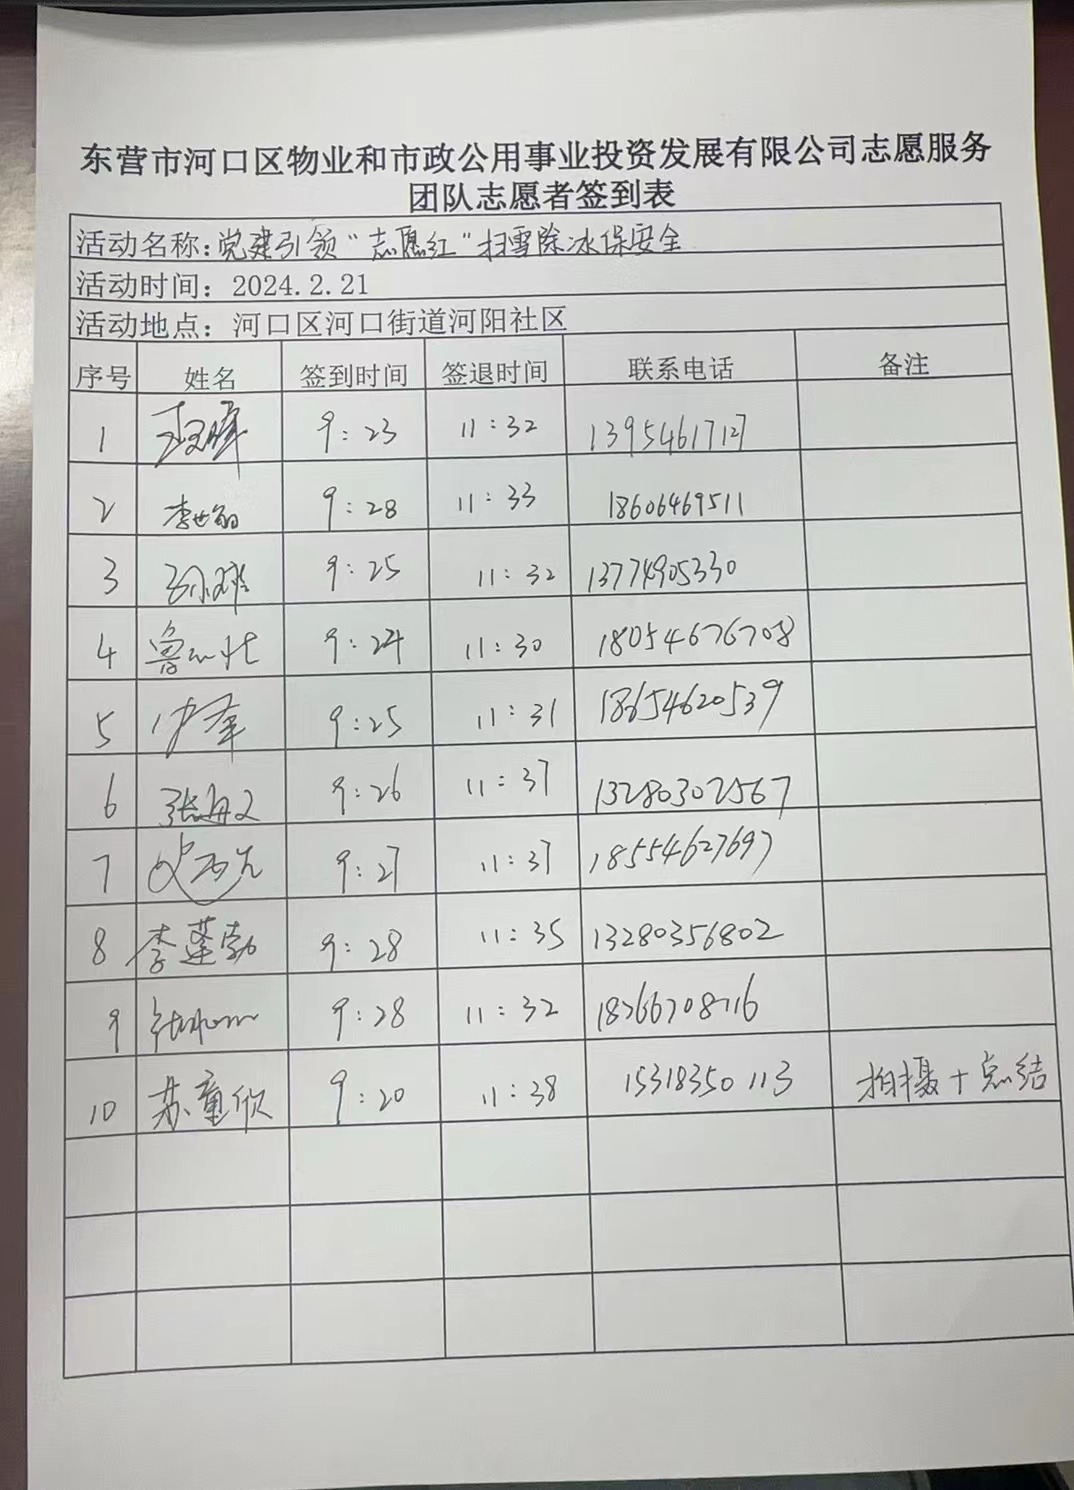 东营市河口区物业和市政公用事业投资发展有限公司志愿服务
团队志愿者签到表
活动名称：党建引领“志愿红”扫雪除冰保安全
活动时间：2024.2.21
活动地点：河口区河口街道河阳社区
序号 姓名 签到时间 签退时间 联系电话 备注
1 9:23 11:32 13954617127
2 李世韵 9:28 11:33 18606469511
3 9:25 11:32 13774905330
4 鲁 9:24 11:30 18054676708
5 9:25 11:31 18654620539
6 张 9:26 11:37 13280302567
7 9:27 11:37 18554627697
8 李蓬勃 9:28 11:35 13280356802
9 9:28 11:32
10 苏童欣 9:20 11:38 15318350113 拍摄+总结